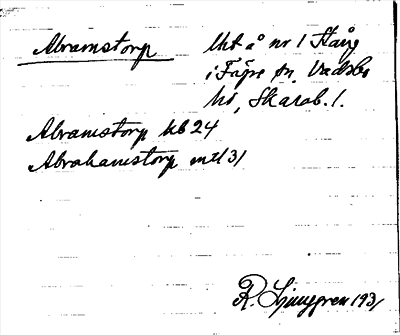 Abramstorp Utt å nr 1 Stång
i Fägre sn, Vadsbo
hd, Skarab. l.
Abramstorp kb 24
Abrahamstorp mtl 31
R. Ljunggren 1931